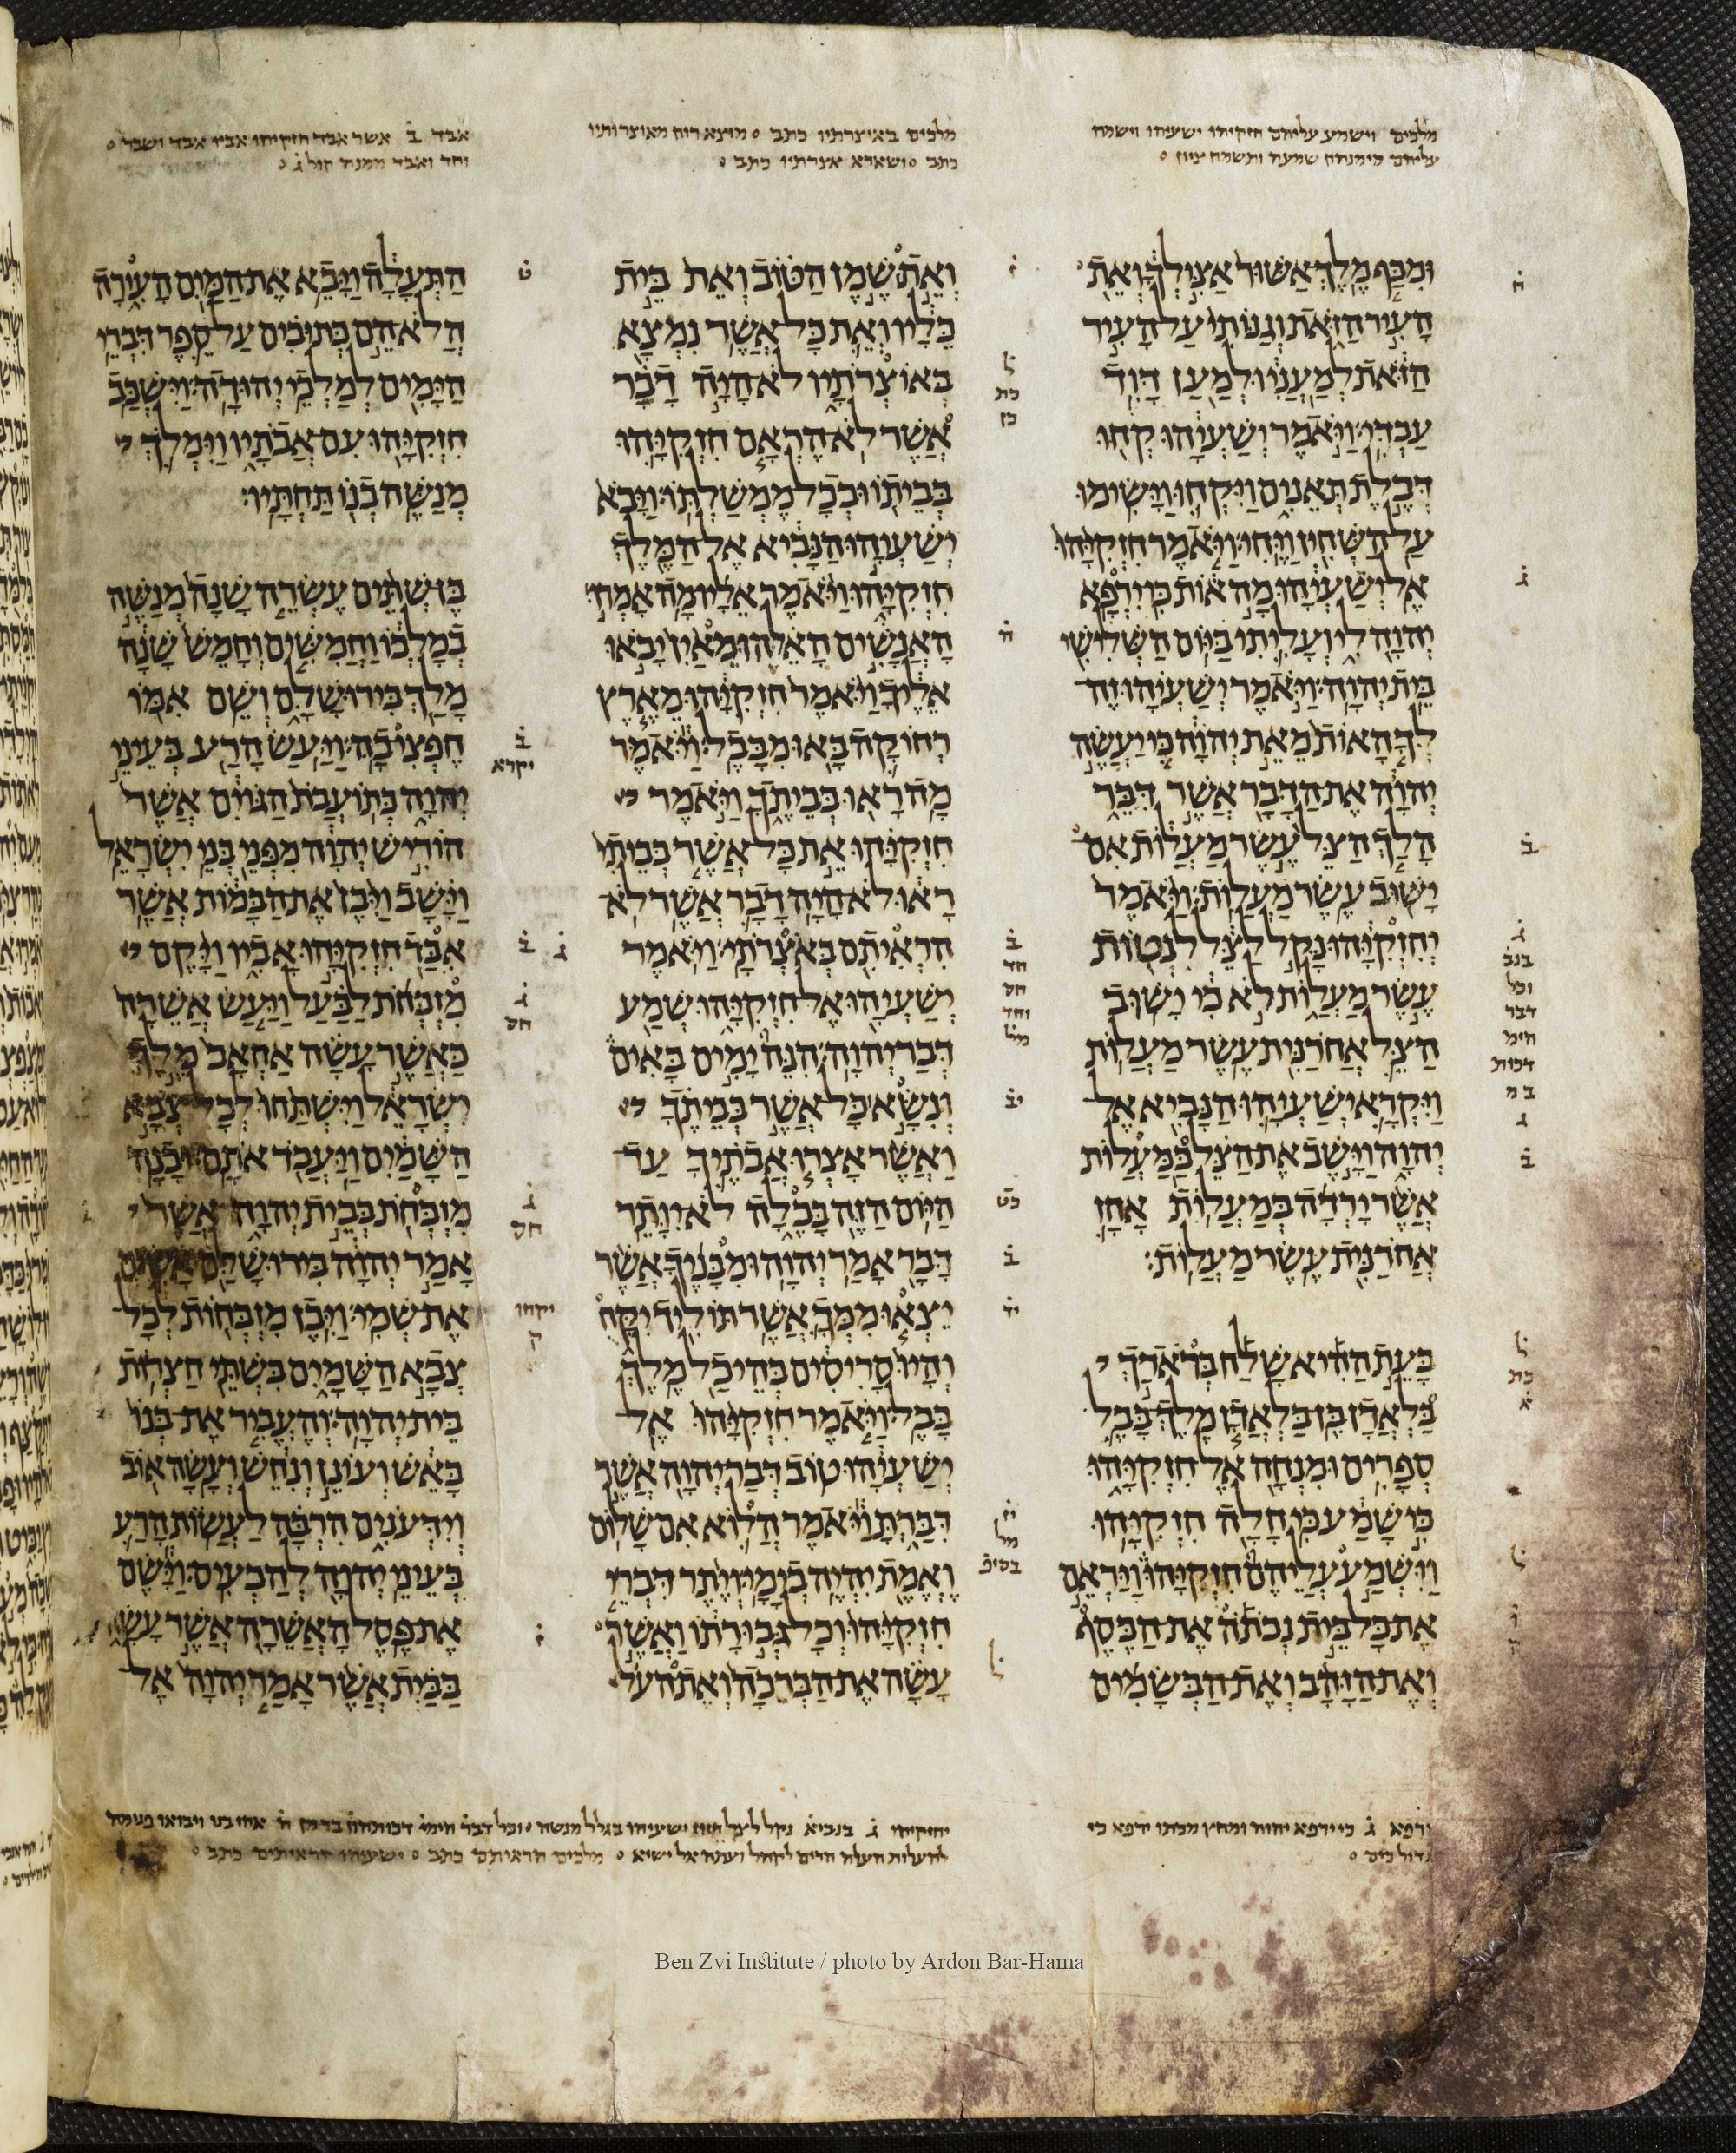 מלכים וישמע עליהם חזקיהו ישעיהו וישמח
עליהם מימנהון שמעה ותשמח ציון
מלכים באיצרתיו כתב מוצא רוח מאוצרותיו
כתב ושארא אצרתיו כתב
אבד בׄ אשר אבד חזקיהו אביו אבד ושבר
וחד ואבד ממנה קול גׄ
וּמִכַּף מֶלֶךְ אַשּׁוּר אַצִּילְךָ וְאֵת
הָעִיר הַזֹּאת וְגַנּוֹתִי עַל הָעִיר
הַזֹּאת לְמַעֲנִי וּלְמַעַן דָּוִד
עַבְדִּי׃ וַיֹּאמֶר יְשַׁעְיָהוּ קְחוּ
דְּבֶלֶת תְּאֵנִים וַיִּקְחוּ וַיָּשִׂימוּ
עַל הַשְּׁחִין וַיֶּחִי׃ וַיֹּאמֶר חִזְקִיָּהוּ
אֶל יְשַׁעְיָהוּ מָה אוֹת כִּי יִרְפָּא
יְהוָה לִי וְעָלִיתִי בַּיּוֹם הַשְּׁלִישִׁי
בֵּית יְהוָה׃ וַיֹּאמֶר יְשַׁעְיָהוּ זֶה
לְּךָ הָאוֹת מֵאֵת יְהוָה כִּי יַעֲשֶׂה
יְהוָה אֶת הַדָּבָר אֲשֶׁר דִּבֵּר
הָלַךְ הַצֵּל עֶשֶׂר מַעֲלוֹת אִם
יָשׁוּב עֶשֶׂר מַעֲלוֹת׃ וַיֹּאמֶר
יְחִזְקִיָּהוּ נָקֵל לַצֵּל לִנְטוֹת
עֶשֶׂר מַעֲלוֹת לֹא כִי יָשׁוּב
הַצֵּל אֲחֹרַנִּית עֶשֶׂר מַעֲלוֹת׃
וַיִּקְרָא יְשַׁעְיָהוּ הַנָּבִיא אֶל
יְהוָה וַיָּשֶׁב אֶת הַצֵּל בַּמַּעֲלוֹת
אֲשֶׁר יָרְדָה בְּמַעֲלוֹת אָחָז
אֲחֹרַנִּית עֶשֶׂר מַעֲלוֹת׃
בָּעֵת הַהִיא שָׁלַח בְּרֹאדַךְ
בַּלְאֲדָן בֶּן בַּלְאֲדָן מֶלֶךְ בָּבֶל
סְפָרִים וּמִנְחָה אֶל חִזְקִיָּהוּ
כִּי שָׁמַע כִּי חָלָה חִזְקִיָּהוּ׃
וַיִּשְׁמַע עֲלֵיהֶם חִזְקִיָּהוּ וַיַּרְאֵם
אֶת כָּל בֵּית נְכֹתֹה אֶת הַכֶּסֶף
וְאֶת הַזָּהָב וְאֶת הַבְּשָׂמִים
וְאֵת שֶׁמֶן הַטּוֹב וְאֵת בֵּית
כֵּלָיו וְאֵת כָּל אֲשֶׁר נִמְצָא
בְּאוֹצְרֹתָיו לֹא הָיָה דָבָר
אֲשֶׁר לֹא הֶרְאָם חִזְקִיָּהוּ
בְּבֵיתוֹ וּבְכָל מֶמְשַׁלְתּוֹ׃ וַיָּבֹא
יְשַׁעְיָהוּ הַנָּבִיא אֶל הַמֶּלֶךְ
חִזְקִיָּהוּ וַיֹּאמֶר אֵלָיו מָה אָמְרוּ
הָאֲנָשִׁים הָאֵלֶּה וּמֵאַיִן יָבֹאוּ
אֵלֶיךָ וַיֹּאמֶר חִזְקִיָּהוּ מֵאֶרֶץ
רְחוֹקָה בָּאוּ מִבָּבֶל׃ וַיֹּאמֶר
מָה רָאוּ בְּבֵיתֶךָ וַיֹּאמֶר
חִזְקִיָּהוּ אֵת כָּל אֲשֶׁר בְּבֵיתִי
רָאוּ לֹא הָיָה דָבָר אֲשֶׁר לֹא
הִרְאִיתִם בְּאֹצְרֹתָי׃ וַיֹּאמֶר
יְשַׁעְיָהוּ אֶל חִזְקִיָּהוּ שְׁמַע
דְּבַר יְהוָה׃ הִנֵּה יָמִים בָּאִים
וְנִשָּׂא כָּל אֲשֶׁר בְּבֵיתֶךָ
וַאֲשֶׁר אָצְרוּ אֲבֹתֶיךָ עַד
הַיּוֹם הַזֶּה בָּבֶלָה לֹא יִוָּתֵר
דָּבָר אָמַר יְהוָה׃ וּמִבָּנֶיךָ אֲשֶׁר
יֵצְאוּ מִמְּךָ אֲשֶׁר תּוֹלִיד יִקָּח
וְהָיוּ סָרִיסִים בְּהֵיכַל מֶלֶךְ
בָּבֶל׃ וַיֹּאמֶר חִזְקִיָּהוּ אֶל
יְשַׁעְיָהוּ טוֹב דְּבַר יְהוָה אֲשֶׁר
דִּבַּרְתָּ וַיֹּאמֶר הֲלוֹא אִם שָׁלוֹם
וֶאֱמֶת יִהְיֶה בְיָמָי׃ וְיֶתֶר דִּבְרֵי
חִזְקִיָּהוּ וְכָל גְּבוּרָתוֹ וַאֲשֶׁר
עָשָׂה אֶת הַבְּרֵכָה וְאֶת הַ
הַתְּעָלָה וַיָּבֵא אֶת הַמַּיִם הָעִירָה
הֲלֹא הֵם כְּתוּבִים עַל סֵפֶר דִּבְרֵי
הַיָּמִים לְמַלְכֵי יְהוּדָה׃ וַיִּשְׁכַּב
חִזְקִיָּהוּ עִם אֲבֹתָיו וַיִּמְלֹךְ
מְנַשֶּׁה בְנוֹ תַּחְתָּיו׃
בֶּן שְׁתֵּים עֶשְׂרֵה שָׁנָה מְנַשֶּׁה
בְמָלְכוֹ וַחֲמִשִּׁים וְחָמֵשׁ שָׁנָה
מָלַךְ בִּירוּשָׁלָ͏ִם וְשֵׁם אִמּוֹ
חֶפְצִי בָהּ׃ וַיַּעַשׂ הָרַע בְּעֵינֵי
יְהוָה כְּתוֹעֲבֹת הַגּוֹיִם אֲשֶׁר
הוֹרִישׁ יְהוָה מִפְּנֵי בְּנֵי יִשְׂרָאֵל׃
וַיָּשָׁב וַיִּבֶן אֶת הַבָּמוֹת אֲשֶׁר
אִבַּד חִזְקִיָּהוּ אָבִיו וַיָּקֶם
מִזְבְּחֹת לַבַּעַל וַיַּעַשׂ אֲשֵׁרָה
כַּאֲשֶׁר עָשָׂה אַחְאָב מֶלֶךְ
יִשְׂרָאֵל וַיִּשְׁתַּחוּ לְכָל צְבָא
הַשָּׁמַיִם וַיַּעֲבֹד אֹתָם׃ וּבָנָה
מִזְבְּחֹת בְּבֵית יְהוָה אֲשֶׁר
אָמַר יְהוָה בִּירוּשָׁלַ͏ִם אָשִׂים
אֶת שְׁמִי׃ וַיִּבֶן מִזְבְּחוֹת לְכָל
צְבָא הַשָּׁמָיִם בִּשְׁתֵּי חַצְרוֹת
בֵּית יְהוָה׃ וְהֶעֱבִיר אֶת בְּנוֹ
בָּאֵשׁ וְעוֹנֵן וְנִחֵשׁ וְעָשָׂה אוֹב
וְיִדְּעֹנִים הִרְבָּה לַעֲשׂוֹת הָרַע
בְּעֵינֵי יְהוָה לְהַכְעִיס׃ וַיָּשֶׂם
אֶת פֶּסֶל הָאֲשֵׁרָה אֲשֶׁר עָשָׂה
בַּבַּיִת אֲשֶׁר אָמַר יְהוָה אֶל
ירפא גׄ כי ירפא יהוה ומחץ מכתו ירפא כי
גדול כים
יחזקיהו גׄ בנביא נקל לצל חזון ישעיהו בגלל מנשה וכל דבר הימי דכותהון
להעלות מלכים הראיתם כתב ישעיהו הראיתים כתב
Ben Zvi Institute / photo by Ardon Bar-Hama